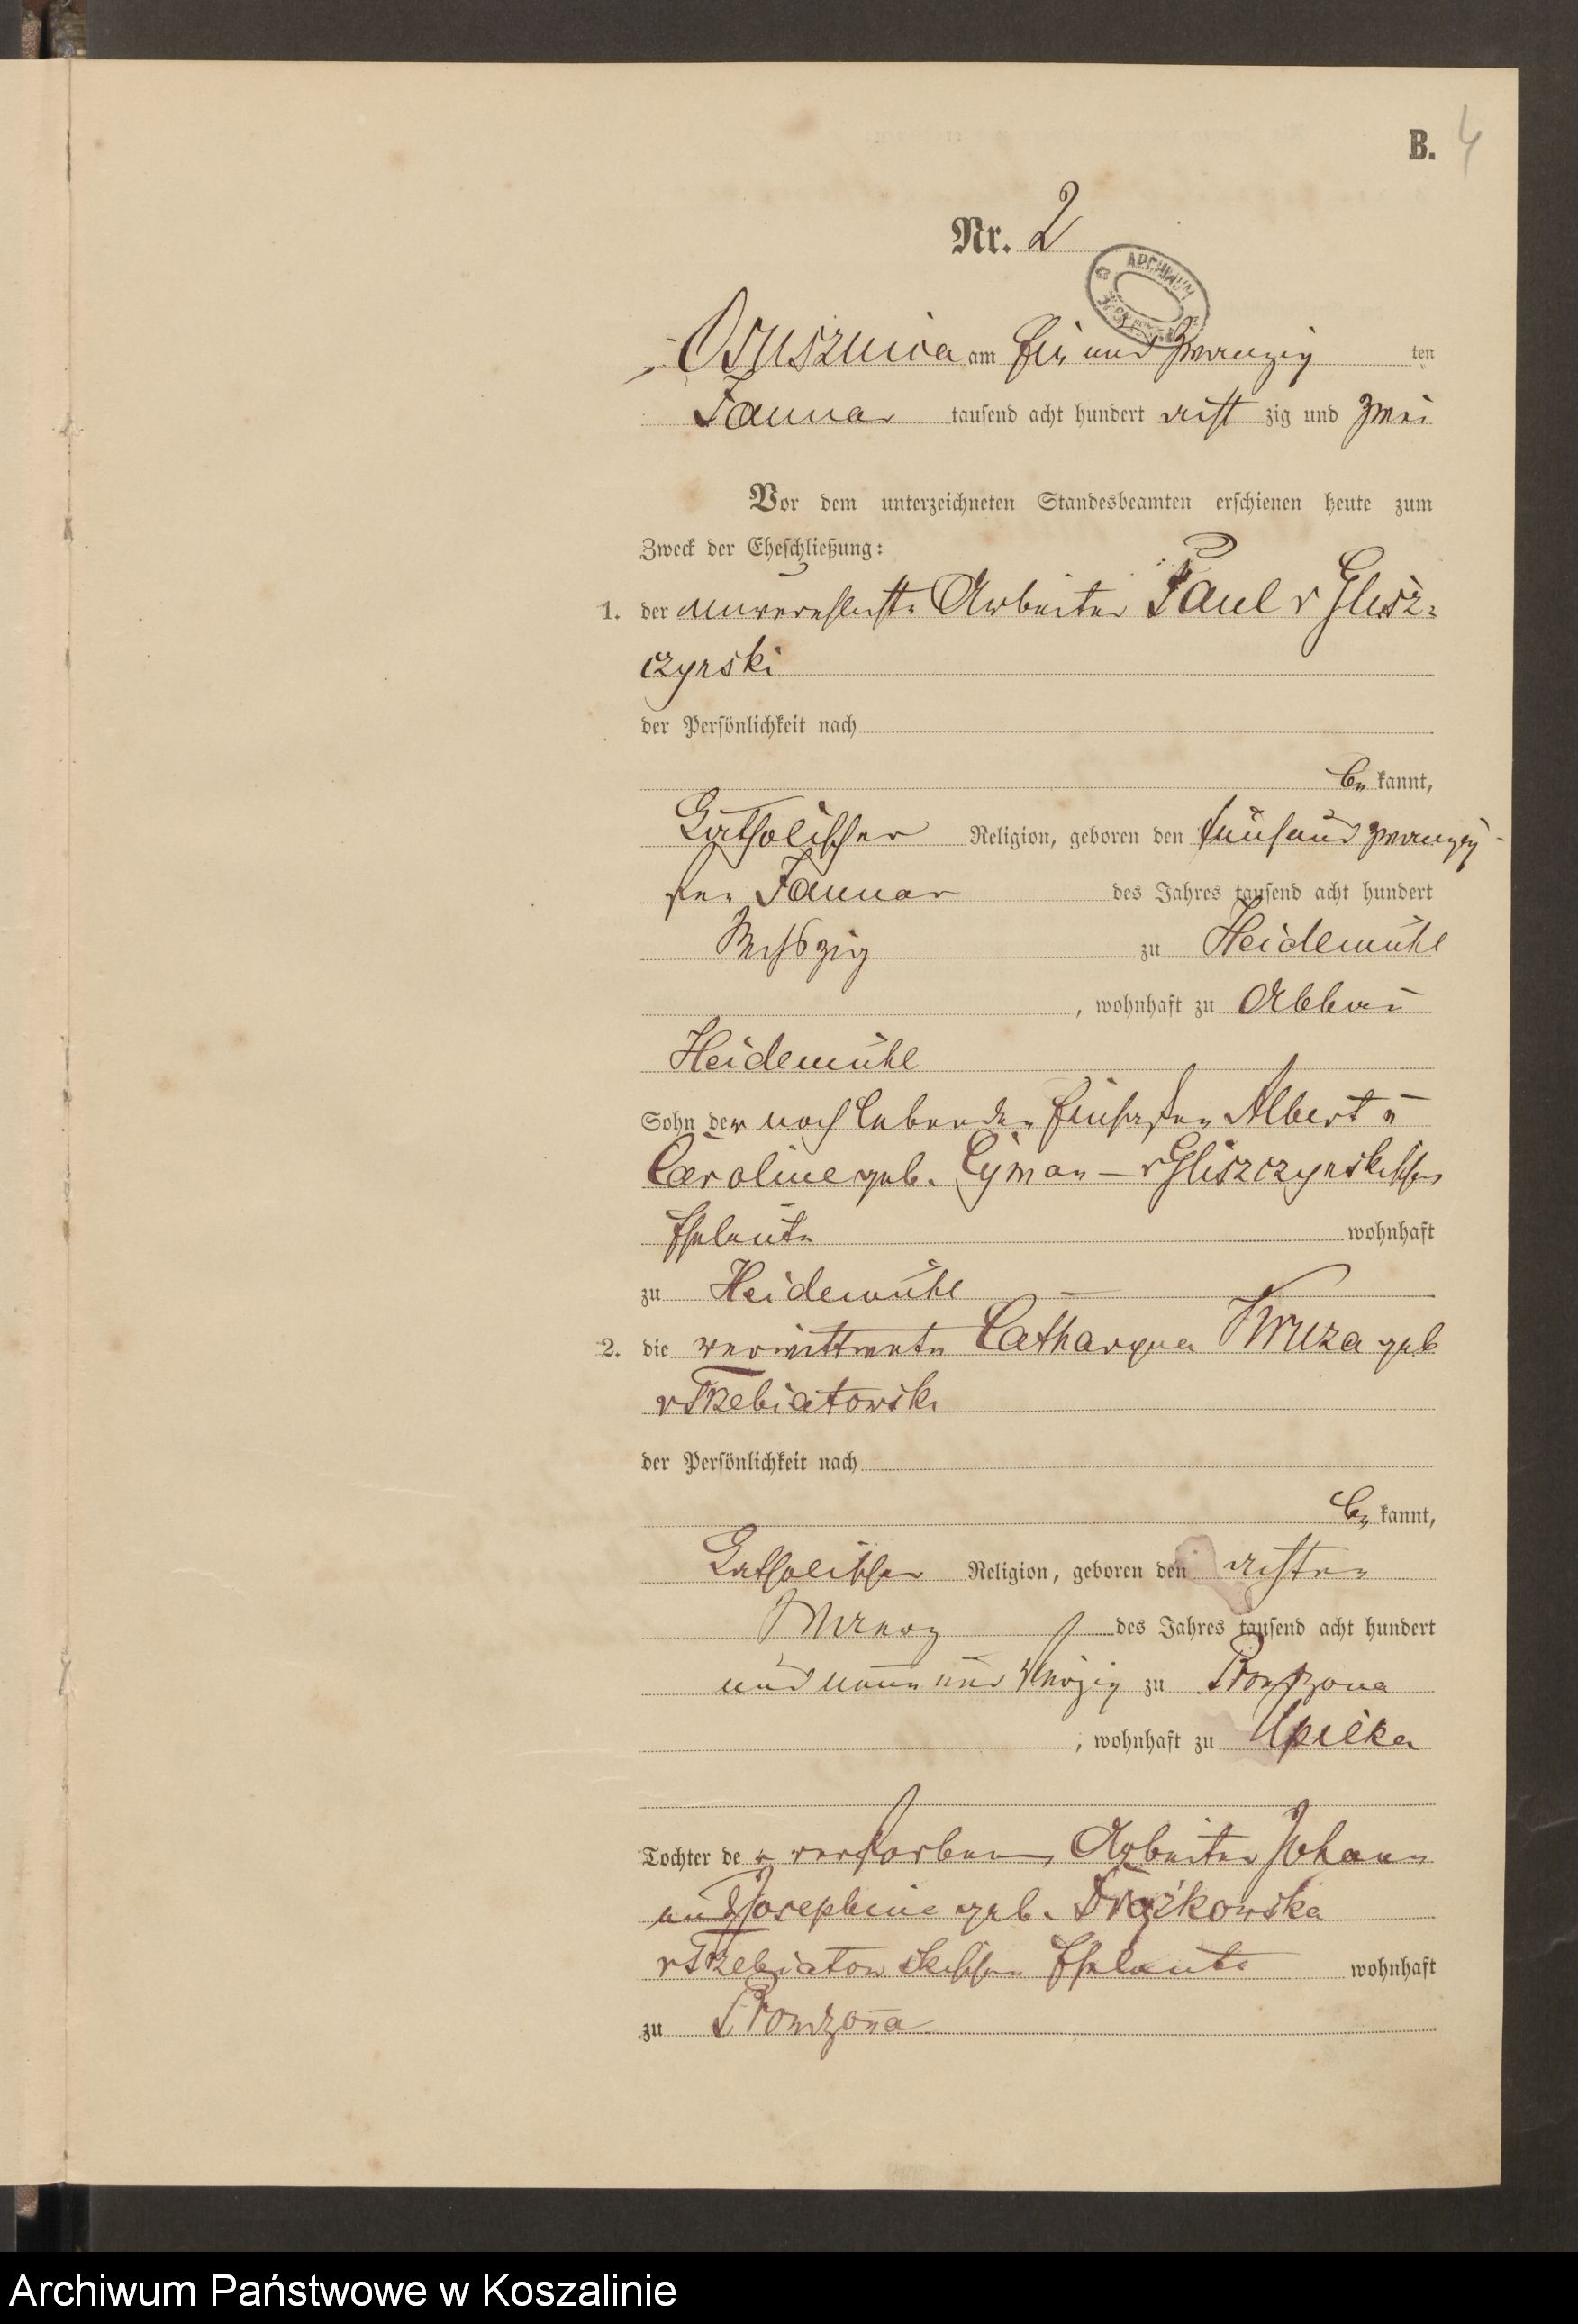 B. 4
Nr. 2
ARCHIWUM
Osusznica am Ein und zwanzig ten
Januar tausend acht hundert acht zig und zwei
Vor dem unterzeichneten Standesbeamten erschienen heute zum
Zweck der Eheschließung:
1. der unverehlichte Arbeiter Paul v Glisz-
czynski
der Persönlichkeit nach
be kannt,
Katholischer Religion, geboren den fünf und zwanzig-
sten Januar des Jahres tausend acht hundert
sechszig zu Heidemühl
, wohnhaft zu Abbau
Heidemühl
Sohn der noch lebenden Einsassen Albert u
Caroline geb. Cyman – v Gliszczynskischen
Eheleute wohnhaft
zu Heidemühl
2. die verwittwete Catharyna geb
v Trzebiatowski
der Persönlichkeit nach
be kannt,
Katholischer Religion, geboren den achten
Maerz des Jahres tausend acht hundert
und neun und vierzig zu Prondzona
, wohnhaft zu Upilka
Tochter der verstorbenen Arbeiter Johann
und Josephine geb. Drążkowska
v Trzebiatowskischen Eheleute wohnhaft
zu Prondzona
Archiwum Państwowe w Koszalinie